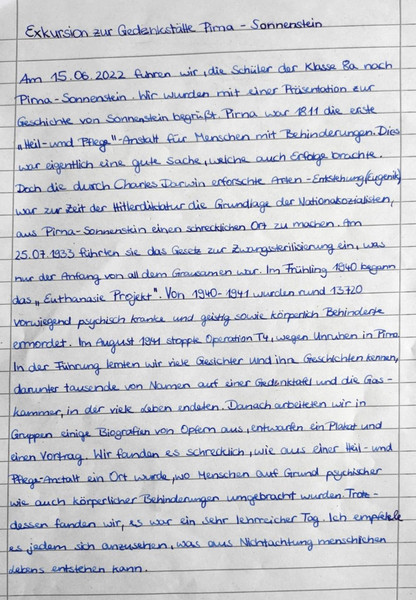 Exkursion zur Gedenkstätte Pirna - Sonnenstein
Am 15.06.2022 fuhren wir, die Schüler der Klasse 8a nach
Pirna-Sonnenstein. Wir wurden mit einer Präsentation zur
Geschichte von Sonnenstein begrüßt. Pirna war 1811 die erste
„Heil-und Pflege"-Anstalt für Menschen mit Behinderungen. Dies
war eigentlich eine gute Sache, welche auch Erfolge brachte.
Doch die durch Charles Darwin erforschte Arten-Entstehung (Eugenik)
war zur Zeit der Hitlerdiktatur die Grundlage der Nationalsozialisten,
aus Pirna-Sonnenstein einen schrecklichen Ort zu machen. Am
25.07.1933 führten sie das Gesetz zur Zwangssterilisierung ein, was
nur der Anfang von all dem Grausamen war. Im Frühling 1940 begann
das „Euthanasie Projekt". Von 1940-1941 wurden rund 13720
vorwiegend psychisch kranke und geistig sowie körperlich Behinderte
ermordet. Im August 1941 stoppte Operation T4, wegen Unruhen in Pirna.
In der Führung lernten wir viele Gesichter und ihre Geschichten kennen,
darunter tausende von Namen auf einer Gedenktafel und die Gas-
kammer, in der viele Leben endeten. Danach arbeiteten wir in
Gruppen einige Biografien von Opfern aus, entwarfen ein Plakat und
einen Vortrag. Wir fanden es schrecklich, wie aus einer Heil-und
Pflege-Anstalt ein Ort wurde, wo Menschen auf Grund psychischer
wie auch körperlicher Behinderungen umgebracht wurden. Trotz-
dessen fanden wir, es war ein sehr lehrreicher Tag. Ich empfehle
es jedem sich anzusehen, was aus Nichtachtung menschlichen
Lebens entstehen kann.